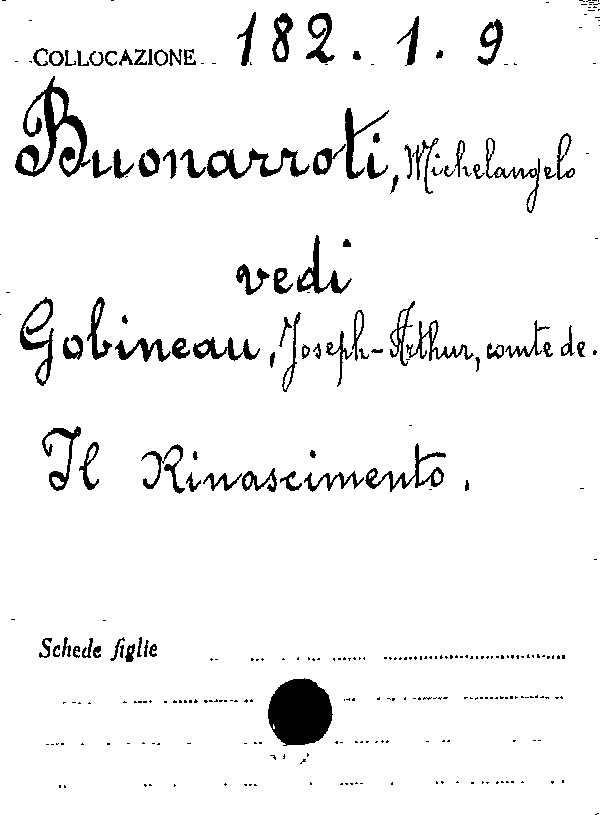 COLLOCAZIONE 182.1.9
Buonarroti, Michelangelo
vedi
Gobineau, Joseph-Arthur, comte de.
Il Rinascimento.
Schede figlie